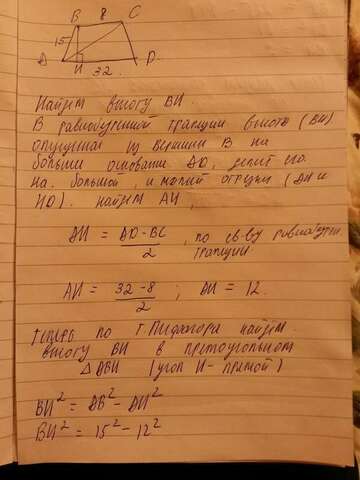 B 8 C
15
A H D
32
Найдем высоту BH.
В равнобедренной трапеции высота (BH)
опущенная из вершины B на
большее основание AD, делит его
на большой, и малый отрезки (AH и
HD). Найдем AH,
AH = AD-BC / 2 , по св-ву равнобедр. трапеции.
AH = 32-8 / 2 ; AH = 12.
Теперь по т. Пифагора найдем
высоту BH в прямоугольном
△ ABH (угол H - прямой)
BH² = AB² - AH²
BH² = 15² - 12²